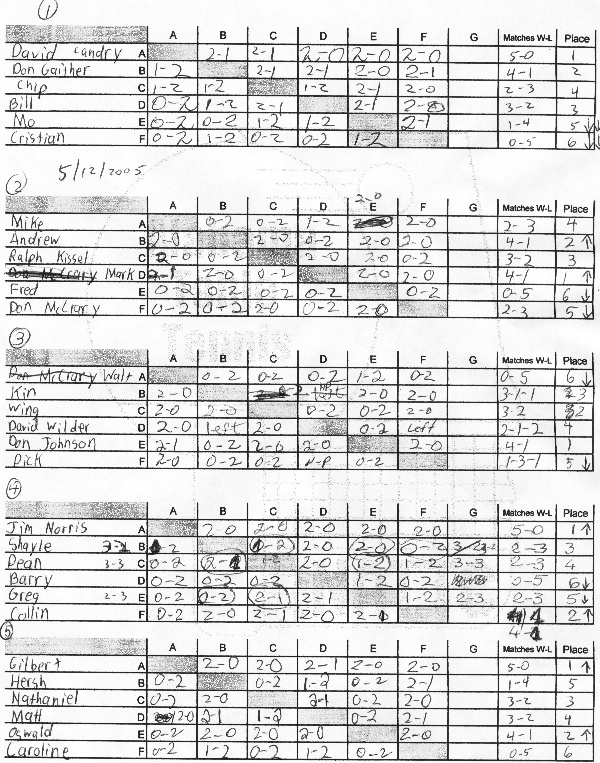 1
A B C D E F G Matches W-L Place
David Landry A 2-1 2-1 2-0 2-0 2-0 5-0 1
Don Gaither B 1-2 2-1 2-1 2-0 2-1 4-1 2
Chip C 1-2 1-2 1-2 2-1 2-0 2-3 4
Bill D 0-2 1-2 2-1 2-1 2-0 3-2 3
Mo E 0-2 0-2 1-2 1-2 2-1 1-4 5↓
Cristian F 0-2 1-2 0-2 0-2 1-2 0-5 6↓
5/12/2005
2
2-0
A B C D E F G Matches W-L Place
Mike A 0-2 0-2 1-2 2-0 2-3 4
Andrew B 2-0 2-0 0-2 2-0 2-0 4-1 2↑
Ralph Kissel C 2-0 0-2 2-0 2-0 0-2 3-2 3
Don McCrary Mark D 2-1 2-0 0-2 2-0 2-0 4-1 1↑
Fred E 0-2 0-2 0-2 0-2 0-2 0-5 6↓
Don McCrary F 0-2 0-2 2-0 0-2 2-0 2-3 5↓
3
A B C D E F G Matches W-L Place
Don McCrary Walt A 0-2 0-2 0-2 1-2 0-2 0-5 6↓
Kin B 2-0 NP left 2-0 2-0 3-1-1 3
Wing C 2-0 2-0 0-2 0-2 2-0 3-2 2
David Wilder D 2-0 left 2-0 0-2 Left 2-1-2 4
Don Johnson E 2-1 0-2 2-0 2-0 2-0 4-1 1
Dick F 2-0 0-2 0-2 N-P 0-2 1-3-1 5↓
4
A B C D E F G Matches W-L Place
Jim Norris A 2-0 2-0 2-0 2-0 2-0 5-0 1↑
Shayle 3-2 B 1-2 0-2 2-0 2-0 0-2 2-3 3
Dean 3-3 C 0-2 2-1 2-0 1-2 1-2 3-3 2-3 4
Barry D 0-2 0-2 0-2 1-2 0-2 0-5 6↓
Greg 2-3 E 0-2 0-2 2-1 2-1 1-2 2-3 2-3 5↓
Collin F 0-2 2-0 2-1 2-0 2-1 2↑
4-1
5
A B C D E F G Matches W-L Place
Gilbert A 2-0 2-0 2-1 2-0 2-0 5-0 1↑
Hersh B 0-2 0-2 1-2 0-2 2-1 1-4 5
Nathaniel C 0-2 2-0 2-1 0-2 2-0 3-2 3
Matt D 2-0 2-1 1-2 0-2 2-1 3-2 4
Oswald E 0-2 2-0 2-0 2-0 2-0 4-1 2↑
Caroline F 0-2 1-2 0-2 1-2 0-2 0-5 6